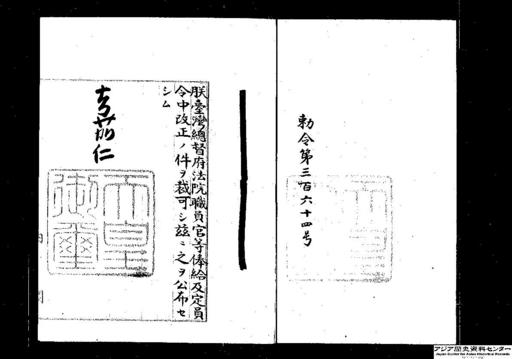 勅令第三百六十四号
朕臺灣總督府法院職員官等俸給及定員
令中改正ノ件ヲ裁可シ茲ニ之ヲ公布セ
シム
嘉仁
天皇
御璽
アジア歴史資料センター
Japan Center for Asian Historical Records